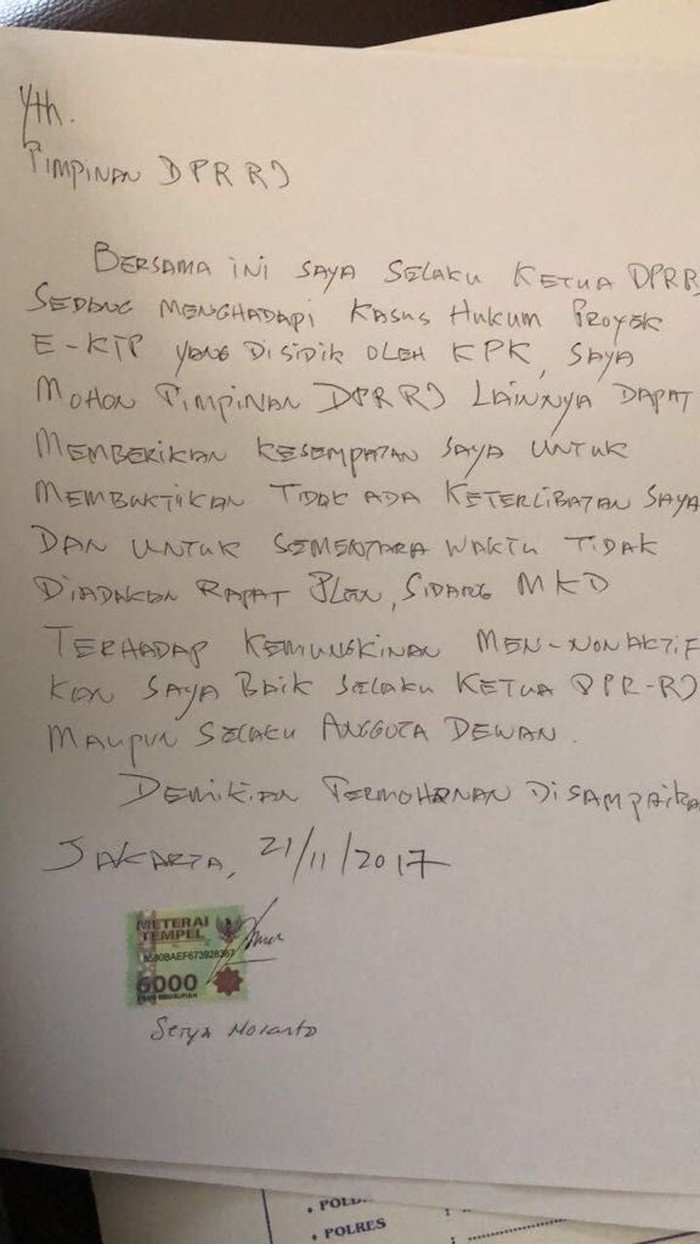 Yth.
PIMPINAN DPR RI
BERSAMA INI SAYA SELAKU KETUA DPRR
SEDANG MENGHADAPI KASUS HUKUM PROYEK
E-KTP YANG DISIDIK OLEH KPK, SAYA
MOHON PIMPINAN DPR RI LAINNYA DAPAT
MEMBERIKAN KESEMPATAN SAYA UNTUK
MEMBUKTIKAN TIDAK ADA KETERLIBATAN SAYA
DAN UNTUK SEMENTARA WAKTU TIDAK
DIADAKAN RAPAT PLENO, SIDANG MKD
TERHADAP KEMUNGKINAN MEN-NONAKTIF
KAN SAYA BAIK SELAKU KETUA DPR-RI
MAUPUN SELAKU ANGGOTA DEWAN.
DEMIKIAN PERMOHONAN DISAMPAIKA
JAKARTA, 21/11/2017
METERAI
TEMPEL
6000
Setya Novanto
• POLRES :